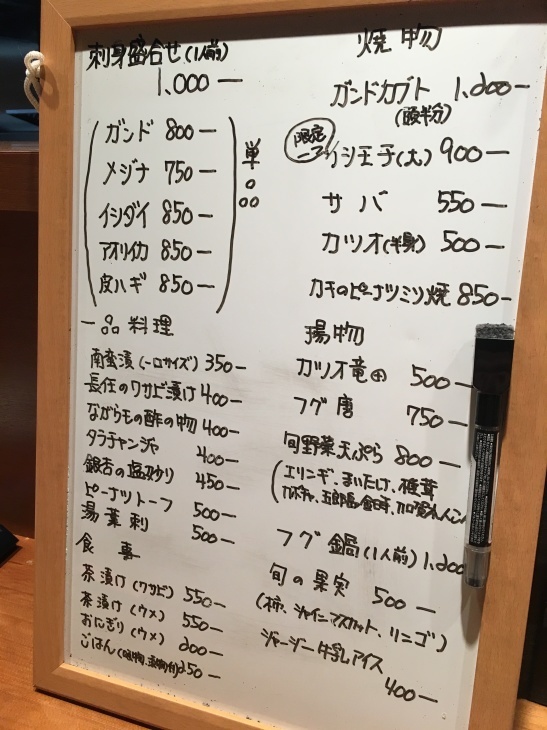 刺身盛合せ(1人前)
1,000ー
ガンド 800ー
メジナ 750ー
イシダイ 850ー
アオリイカ 850ー
皮ハギ 850ー
単品
一品料理
南蛮漬(一口サイズ) 350ー
長任のワサビ漬け 400ー
ながらもの酢の物 400ー
タラチャンジャ 400ー
銀杏の塩炒り 450ー
ピーナツトーフ 500ー
湯葉刺 500ー
食事
茶漬け(ワサビ) 550ー
茶漬け(ウメ) 550ー
おにぎり(ウメ) 200ー
ごはん 250ー
焼物
ガンドカブト 1,200ー
(頭半分)
限定
イシ王子(大) 900ー
サバ 550ー
カツオ(半身) 500ー
カキのピーナツミソ焼 850ー
揚物
カツオ竜田 500ー
フグ唐 750ー
旬野菜天ぷら 800ー
(エリンギ、まいたけ、椎茸
カボチャ、五郎島金時、加賀れんこん
フグ鍋(1人前) 1,200
旬の果実 500ー
(柿、シャインマスカット、リンゴ)
ジャージー牛乳アイス
400ー